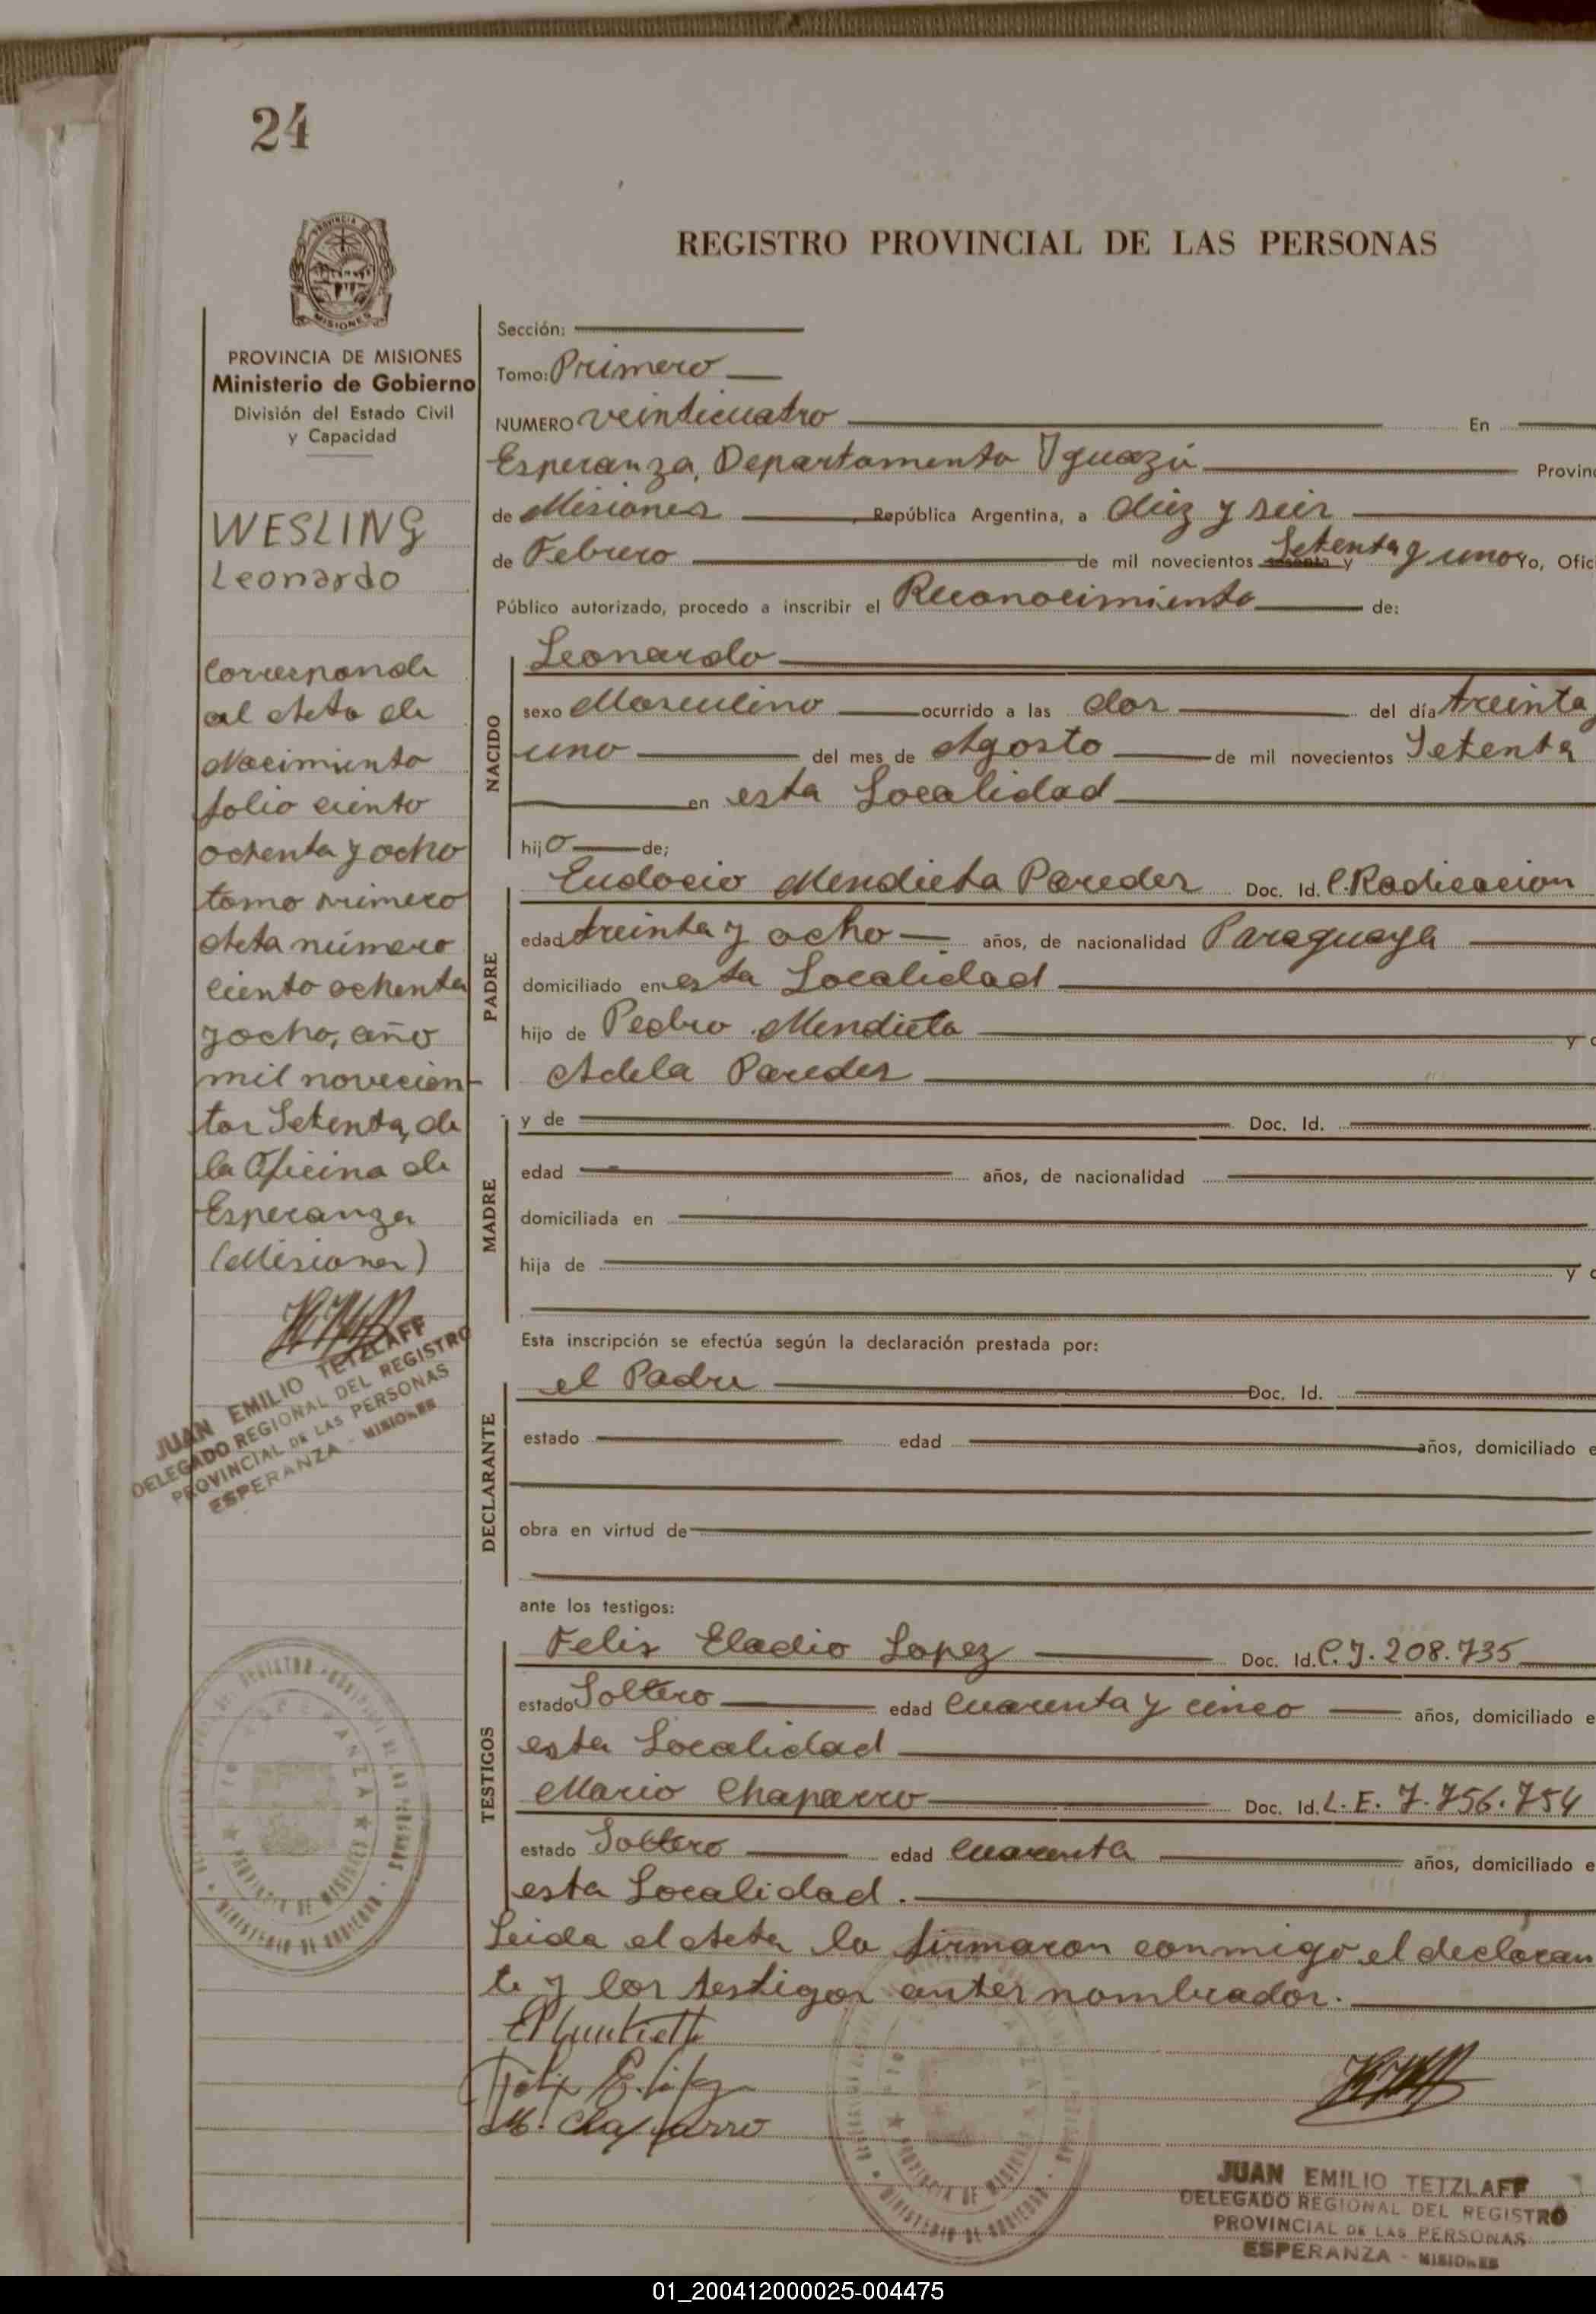 24
REGISTRO PROVINCIAL DE LAS PERSONAS
MISIONES
PROVINCIA DE MISIONES
Ministerio de Gobierno
División del Estado Civil
y Capacidad
WESLING
Leonardo
Corresponde
al Acta de
Nacimiento
folio ciento
ochenta y ocho
tomo primero
Acta número
ciento ochenta
y ocho, año
mil novecien-
tos Setenta, de
la Oficina de
Esperanza
(Misiones)
JUAN EMILIO TETZLAFF
DELEGADO REGIONAL DEL REGISTRO
PROVINCIAL DE LAS PERSONAS
ESPERANZA - MISIONES
Sección:
Tomo: Primero
NUMERO veinticuatro En
Esperanza, Departamento Iguazú Provin
de Misiones, República Argentina, a diez y seis
de Febrero de mil novecientos sesenta y Setenta y uno Yo, Ofic
Público autorizado, procedo a inscribir el Reconocimiento de:
NACIDO
Leonardo
sexo Masculino ocurrido a las dos del día treinta y
uno del mes de Agosto de mil novecientos Setenta
en esta Localidad
hijo de;
PADRE
Eudocio Mendieta Paredes Doc. Id. C. Radicacion
edad treinta y ocho años, de nacionalidad Paraguaya
domiciliado en esta Localidad
hijo de Pedro Mendieta y d
Adela Paredes
MADRE
y de Doc. Id.
edad años, de nacionalidad
domiciliada en
hija de y d
Esta inscripción se efectúa según la declaración prestada por:
DECLARANTE
el Padre Doc. Id.
estado edad años, domiciliado e
obra en virtud de
ante los testigos:
TESTIGOS
Felix Eladio Lopez Doc. Id. C.I. 208.735
estado Soltero edad cuarenta y cinco años, domiciliado e
esta Localidad
Mario Chaparro Doc. Id. L.E. 7.756.754
estado Soltero edad cuarenta años, domiciliado e
esta Localidad.
Leida el Acta la firmaron conmigo el declaran
te y los testigos antes nombrados.
M. Chaparro
JUAN EMILIO TETZLAFF
DELEGADO REGIONAL DEL REGISTRO
PROVINCIAL DE LAS PERSONAS
ESPERANZA - MISIONES
01_200412000025-004475